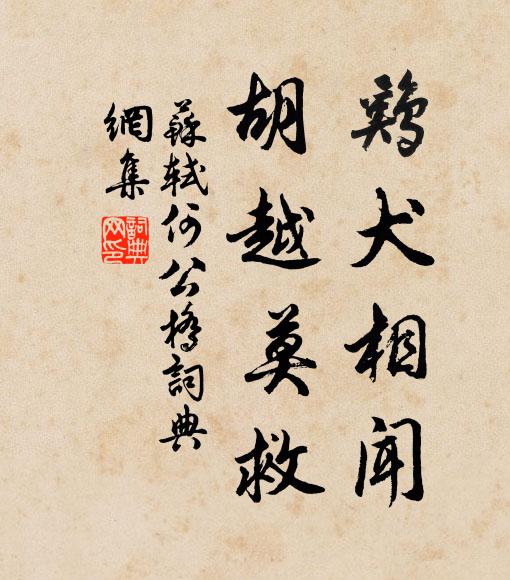 鷄犬相聞
胡越莫救
蘇軾何公橋詞典
網集
詞典
网印